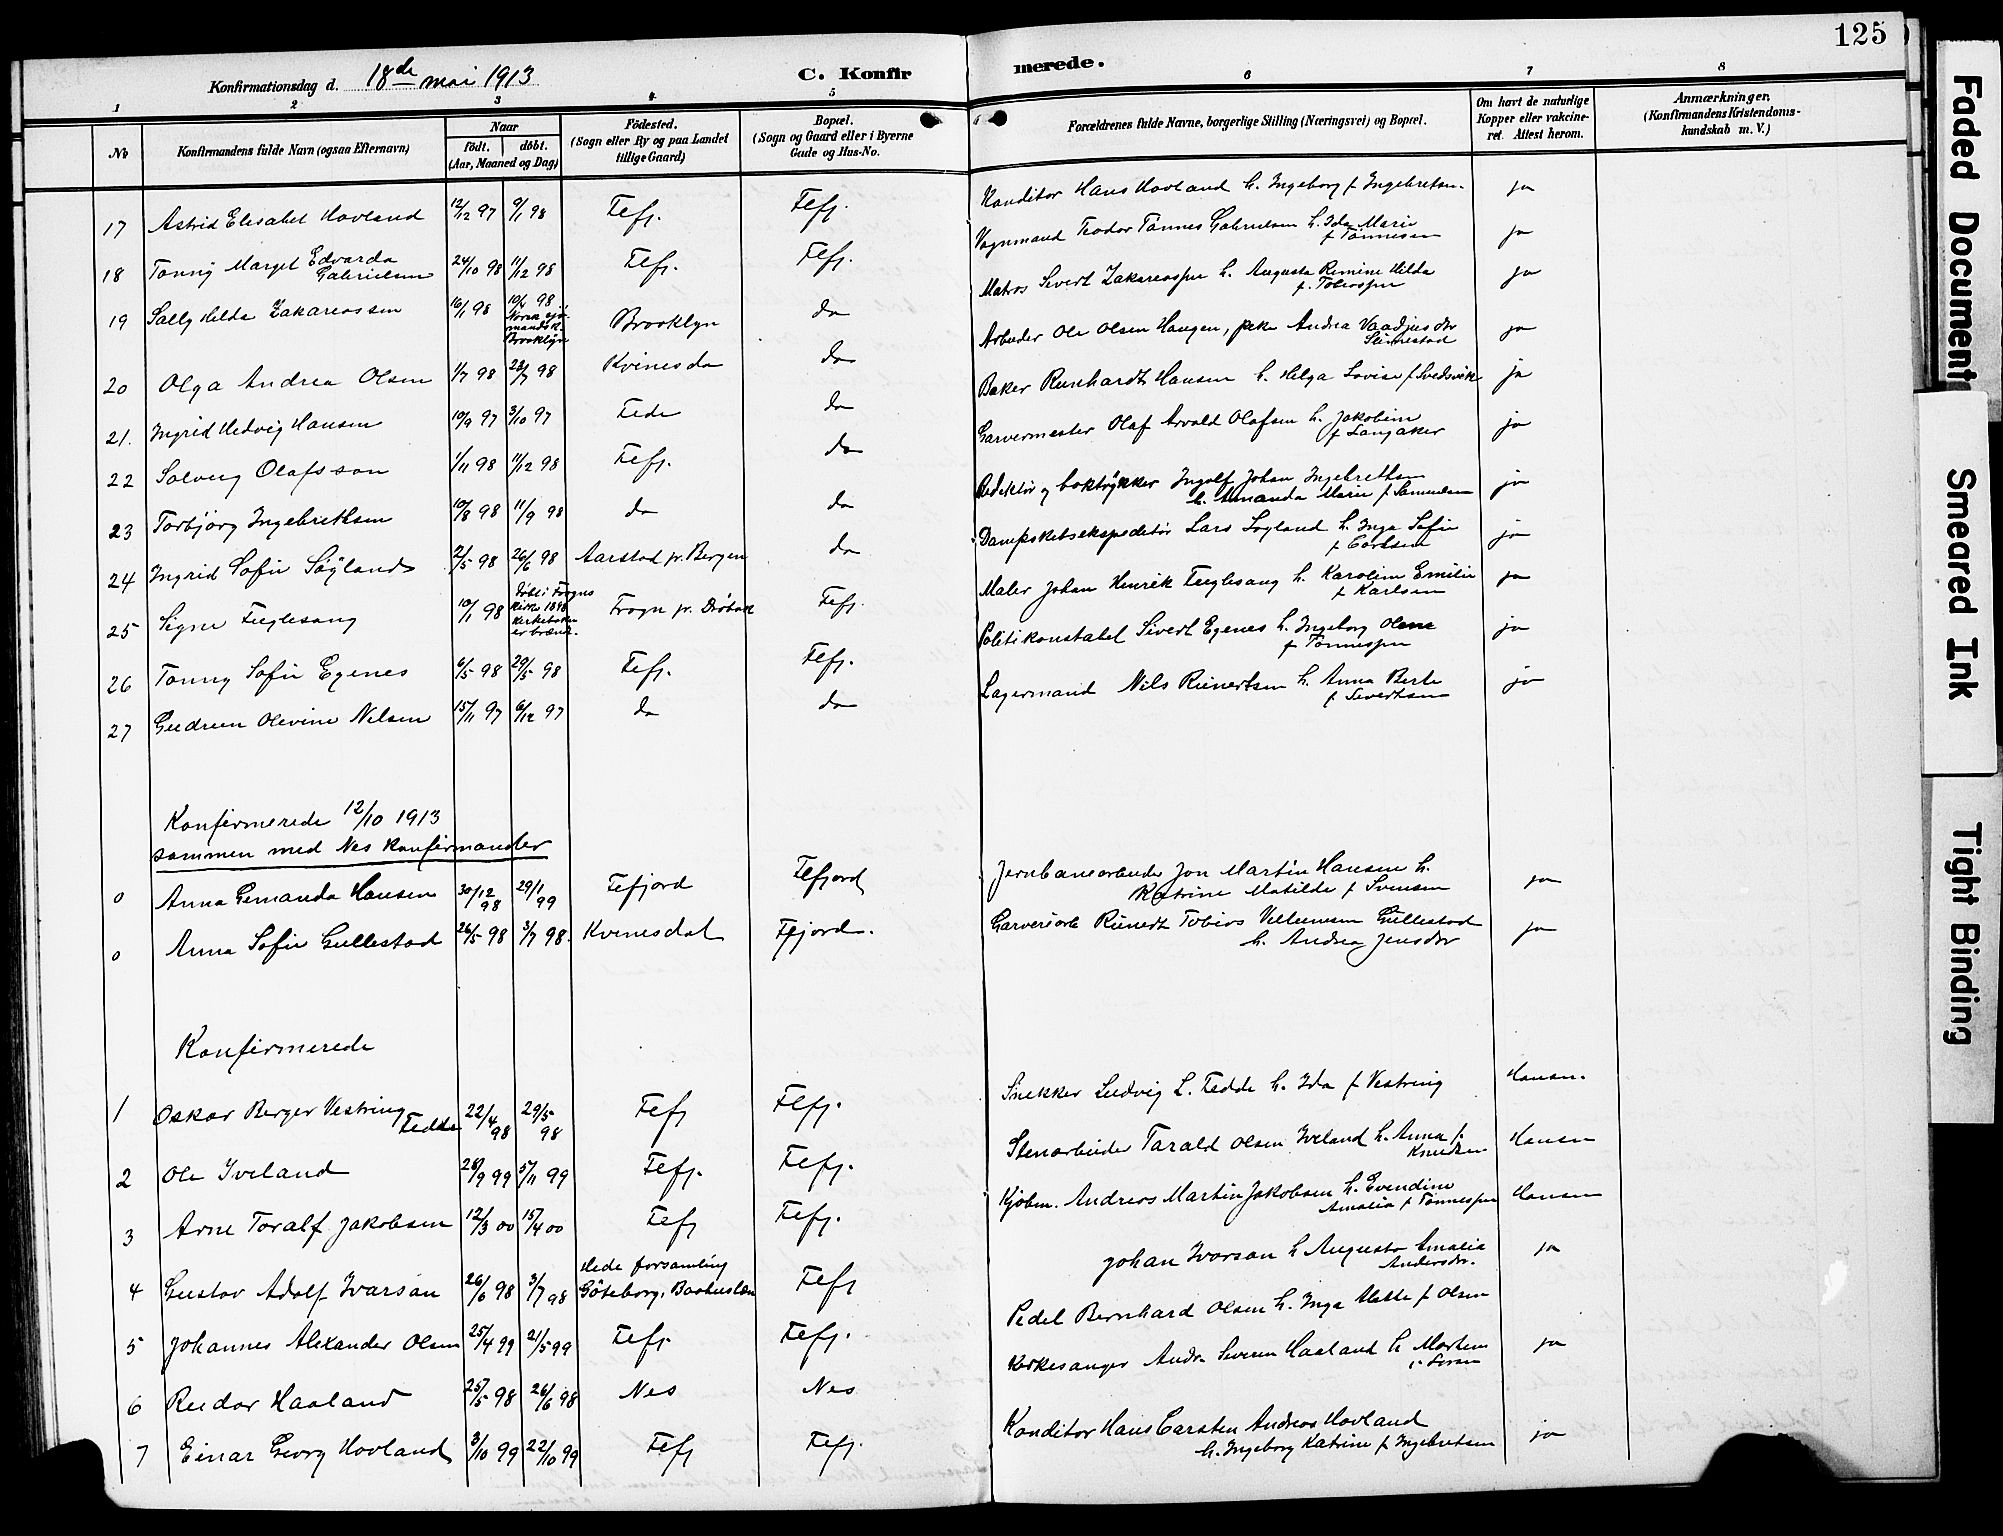 125
Konfirmationsdag d. 18de mai 1913 C. Konfirmerede.
1 2 3 4 5 6 7 8
No Konfirmandens fulde Navn (ogsaa Efternavn) Naar født. døbt. (Aar, Maaned og Dag) Fødested. (Sogn eller By og paa Landet tillige Gaard) Bopæl. (Sogn og Gaard eller i Byerne Gade og Hus-No. Forældrenes fulde Navne, borgerlige Stilling (Næringsvei) og Bopæl. Om havt de naturlige Kopper eller vakcineret. Attest herom. Anmærkninger. (Konfirmandens Kristendomskundskab m. V.)
17 Astrid Elisabet Hovland 12/12 97 9/1 98 Fefj. Fefj. Konditor Hans Hovland h. Ingeborg f Ingebretsn. ja
18 Tonny Marget Edvarda Gabrielsen 24/10 98 11/12 98 Fefj. Fefj. Vognmand Teodor Tønnes Gabrielsen h. Ida Marie f Tønnesen ja
19 Sally Hilda Zakariassen 16/1 98 10/4 98. Norsk sjømandsk. Brooklyn Brooklyn do Matros Sivert Zakariassen h. Augusta Remine Hilda f. Tobiassen ja
20 Olga Andrea Olsen 1/7 98 23/7 98 Kvinesda do Arbeider Ole Olsen Haugen, pike Andrea ja
21. Ingrid Hedvig Hansen 10/9 97 3/10 97 Fede do Baker Reinhardt Hansen h. Helga Lovise f Svedsvik ja
22 Solveig Olafsson 1/11 98 11/12 98 Fefj. do Garvermester Olaf Arvald Olafsen h. Jakobine f Langaker ja
23 Torbjørg Ingebrethsen 10/8 98 11/9 98 do do Redaktør og boktrykker Ingolf Johan Ingebrethsen h. Amanda Marie f Samuelsen ja
24 Ingrid Sofie Søyland 2/5 98 26/6 98 Aarstad pr. Bergen do Dampskibsekspeditør Lars Søyland h. Inga Sofie f Carlsen ja
25 Signe Fuglesang 10/1 98 Døbt i Frogns kirke 1898 kirkeboken er brændt. Frogn pr. Drøbak Fefj. Maler Johan Henrik Fuglesang h. Karoline Emilie f Karlsen ja
26 Tonny Sofie Egenes 6/5 98 29/5 98 Fefj. Fefj. Politikonstabel Sivert Egenes h. Ingeborg Olene f Tønnessen ja
27 Gudrun Olevine Nilsen 15/11 97 6/12 97 do do Lagermand Nils Reinertsen h. Anna Berte f Sivertsen ja
Konfirmerede 12/10 1913
sammen med Nes konfirmander
0 Anna Gemanda Hansen 30/12 98 29/1 99 Fefjord Fefjord Jernbanearbeider Jon Martin Hansen h. Katrine Matilde f Svensen ja
0 Anna Sofie Gullestad 26/5 98 3/7 98. Kvinesdal Fefjord. Garveriarb Reinert Tobias Gullestad h. Andrea Jensdtr ja
Konfirmerede
1 Oskar Berger Vestring Fedde 22/4 98 29/5 98 Fefj Fefj. Snekker Ludvig L. Fedde h. Ida f Vestring Hansn.
2 Ole Iveland 28/9 99 5/11 99 Fefj. Fefj. Stenarbeider Tarald Olsen Iveland h. Anna f. Knudsen Hansn
3 Arne Toralf Jakobsen 12/3 00 15/4 00 Fefj Fefj. Kjøbm. Andreas Martin Jakobsen h. Evendine Amalia f Tønnessen Hansen
4 Gustav Adolf Ivarsan 26/6 98 3/7 98 Hede forsamling Göteborg, Bohuslän Fefj Johan Ivarsan h Augusta Amalia Andersdtr. ja
5 Johannes Alexander Olsen 25/4 99 21/5 99 Fefj. Fefj. Pedel Bernhard Olsen h. Inga Mette f Olsen
6 Reidar Haaland 25/5 98 26/6 98 Nes Nes Kirkesanger Andr. Severin Haaland h ja
7 Einar Georg Hovland 3/10 99 22/10 99 Fefj Fefj. Konditor Hans Carsten Andreas Hovland h. Ingeborg Katrine f Ingebretsen ja
Faded Document
Smeared Ink
Tight Binding